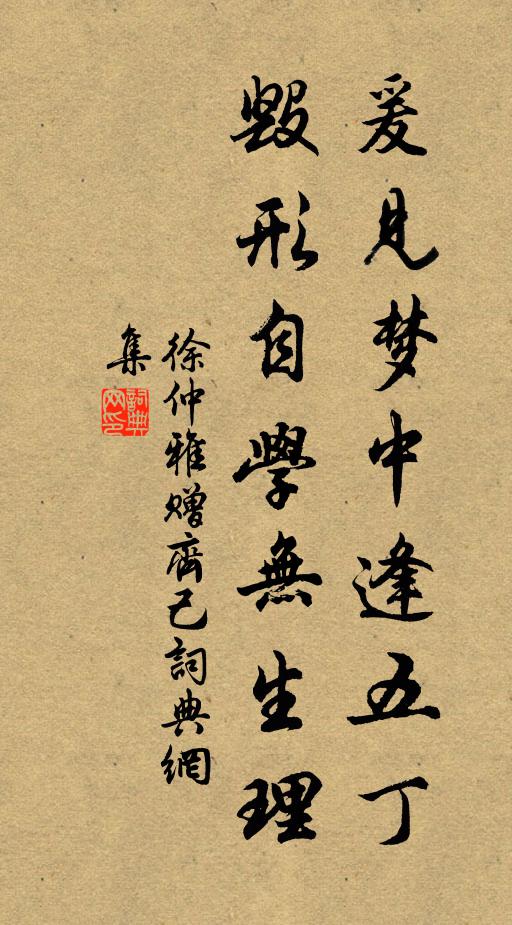 爰見梦中逢五丁
毀形自學無生理
徐仲雅贈齊己詞典網
集
詞典
网印